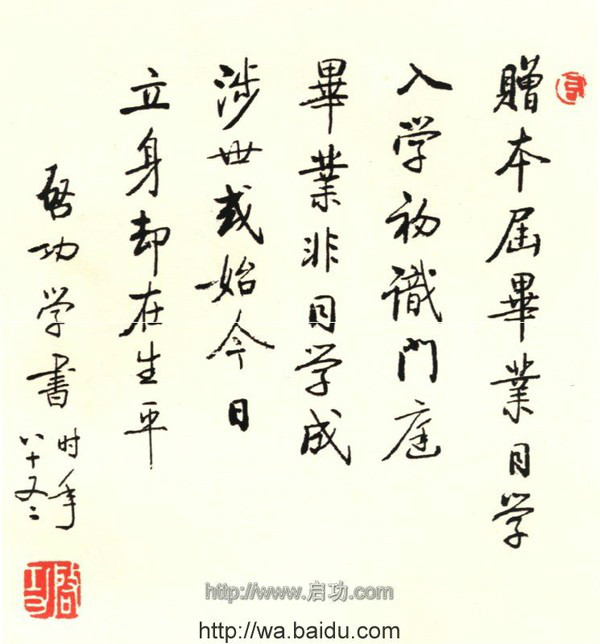 贈本届畢業同学
入学初識門庭
畢業非同学成
涉世或始今日
立身却在生平
啓功学書
时年
八十又二
啓功
http://www.启功.com
http://wa.baidu.com